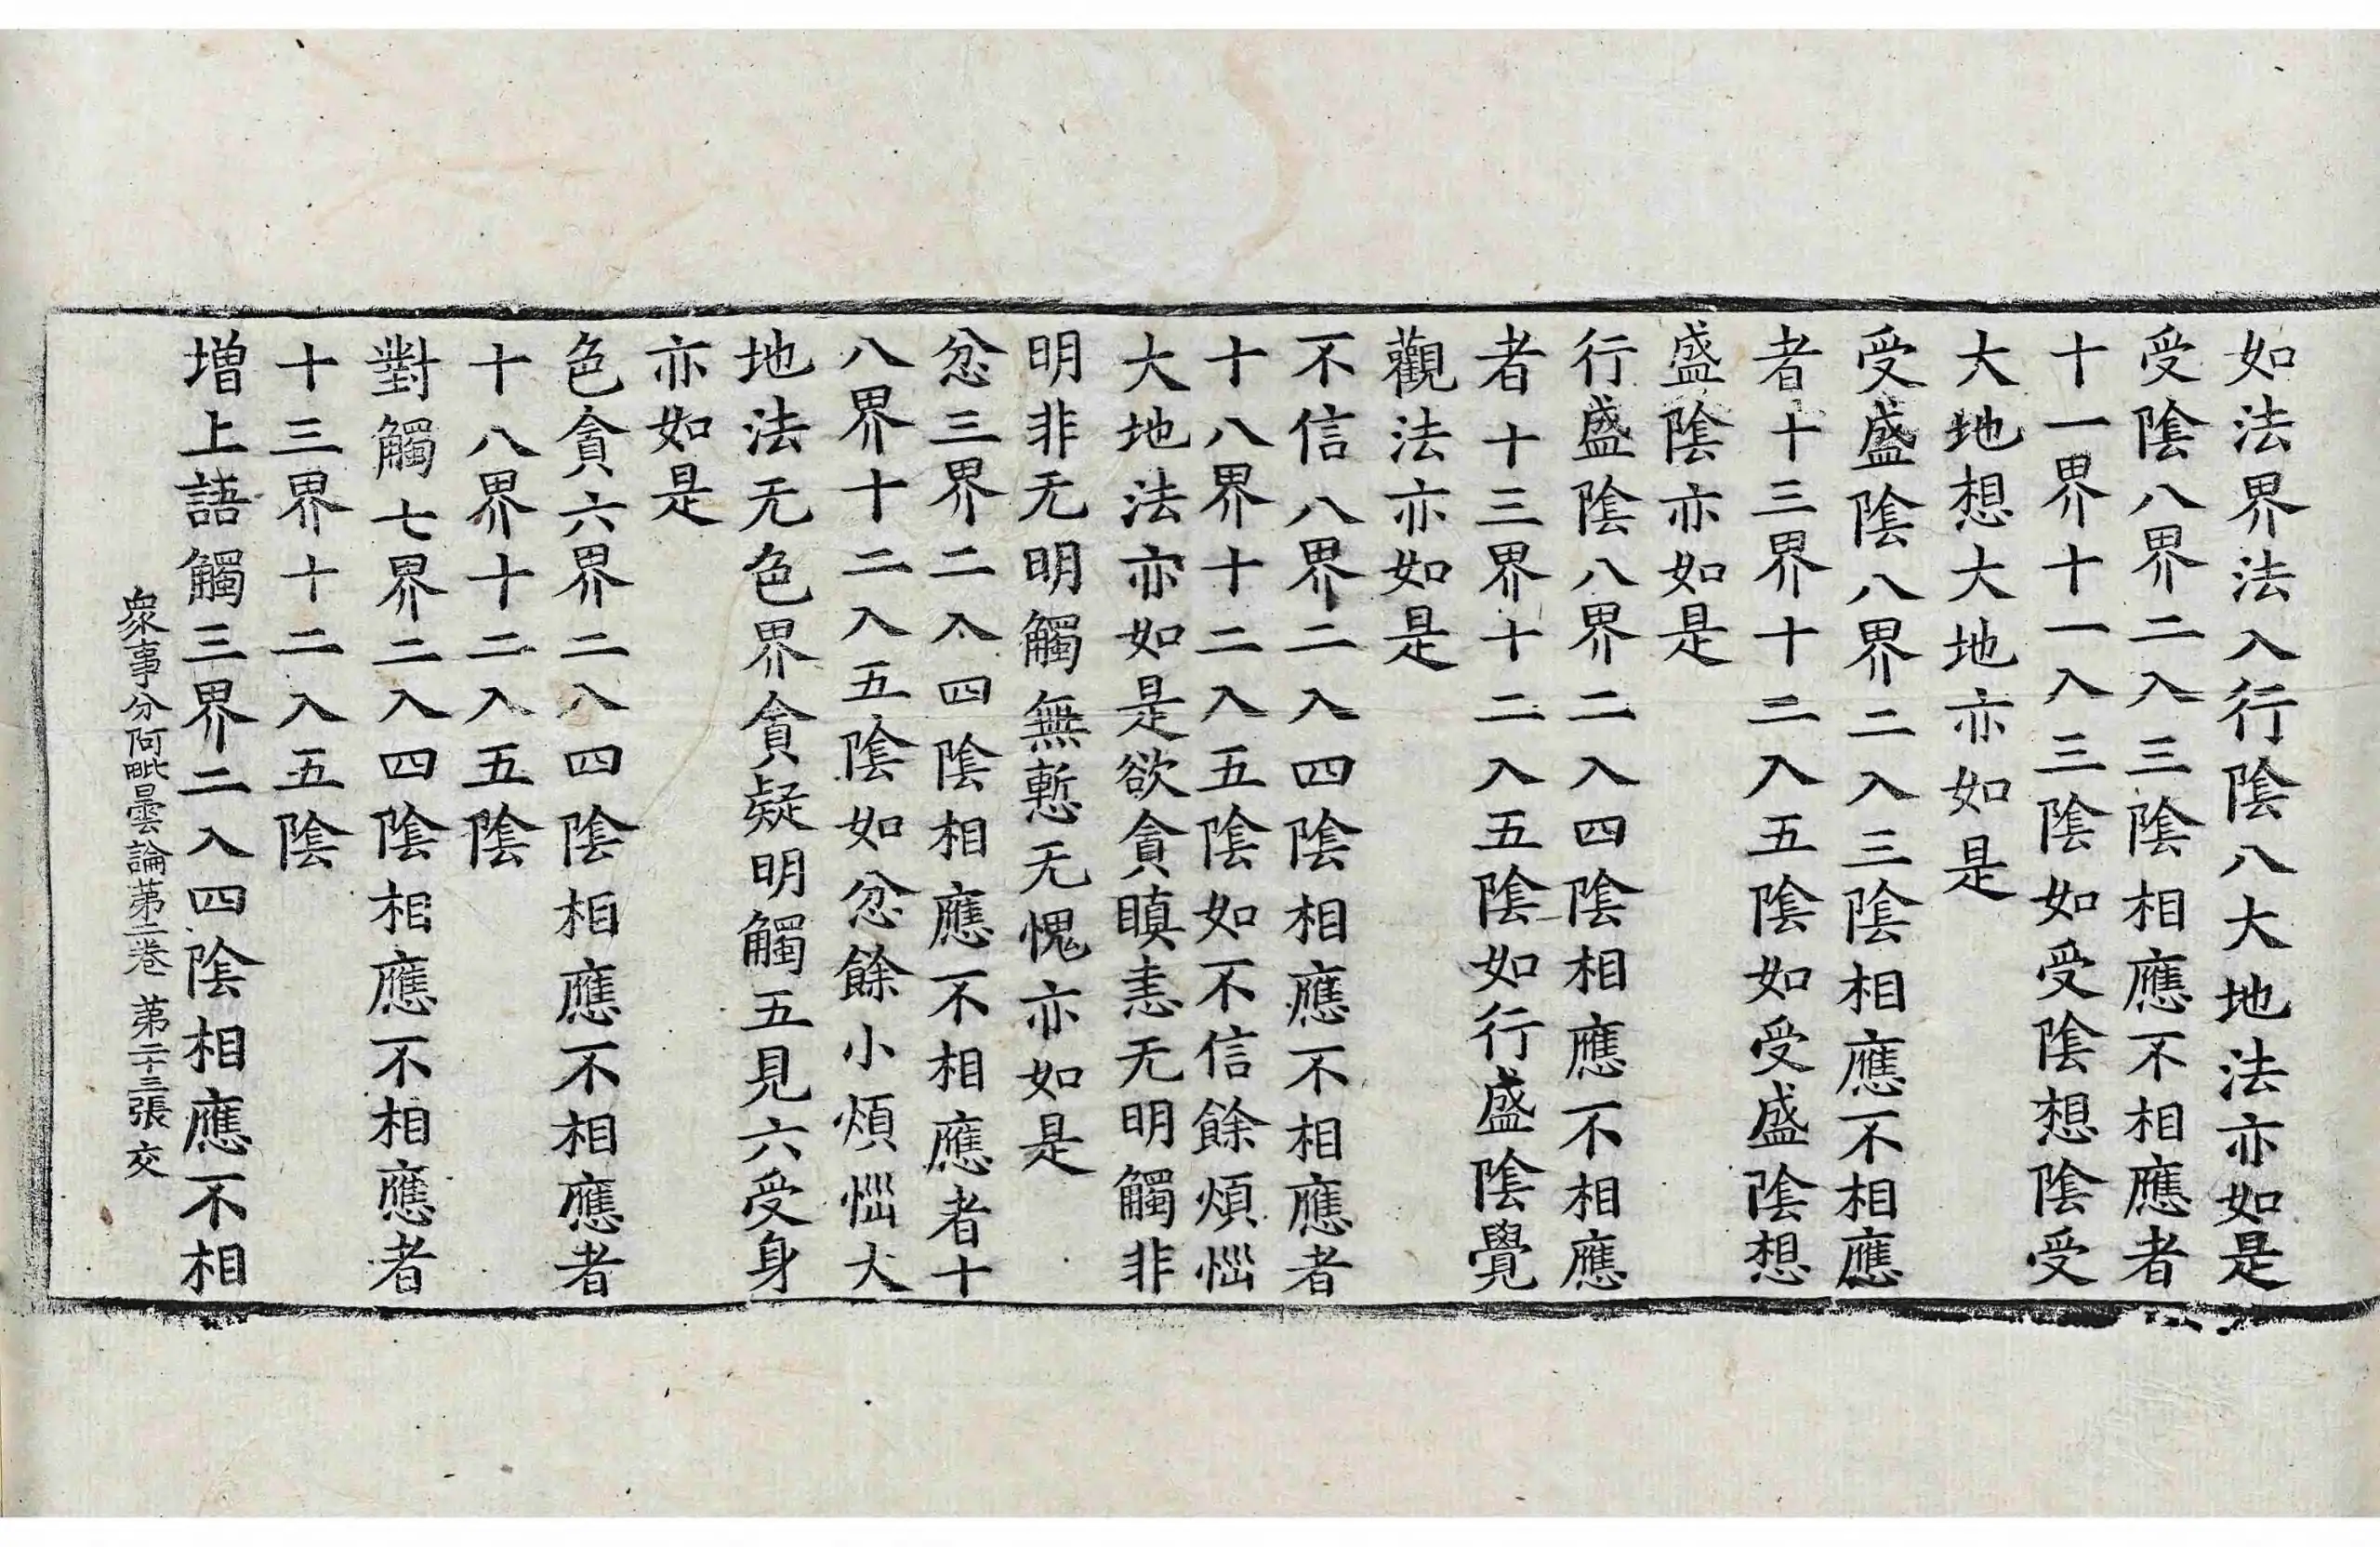 如法界法入行陰八大地法亦如是
受陰八界二入三陰相應不相應者
十一界十一入三陰如受陰想陰受
大地想大地亦如是
受盛陰八界二入三陰相應不相應
者十三界十二入五陰如受盛陰想
盛陰亦如是
行盛陰八界二入四陰相應不相應
者十三界十二入五陰如行盛陰覺
觀法亦如是
不信八界二入四陰相應不相應者
十八界十二入五陰如不信餘煩惱
大地法亦如是欲貪瞋恚无明觸非
明非无明觸無慙无愧亦如是
忿三界二入四陰相應不相應者十
八界十二入五陰如忿餘小煩惱大
地法无色界貪疑明觸五見六受身
亦如是
色貪六界二入四陰相應不相應者
十八界十二入五陰
對觸七界二入四陰相應不相應者
十三界十二入五陰
增上語觸三界二入四陰相應不相
衆事分阿毗曇論苐二巻 苐二十三張 交